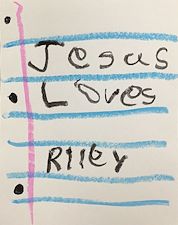 Jesus
Loves
RIley